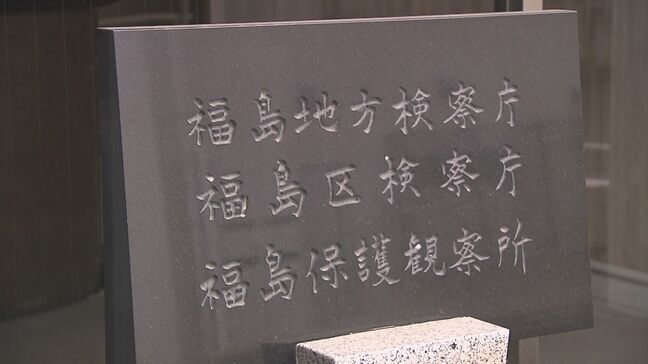 福島地方検察庁
福島区検察庁
福島保護観察所